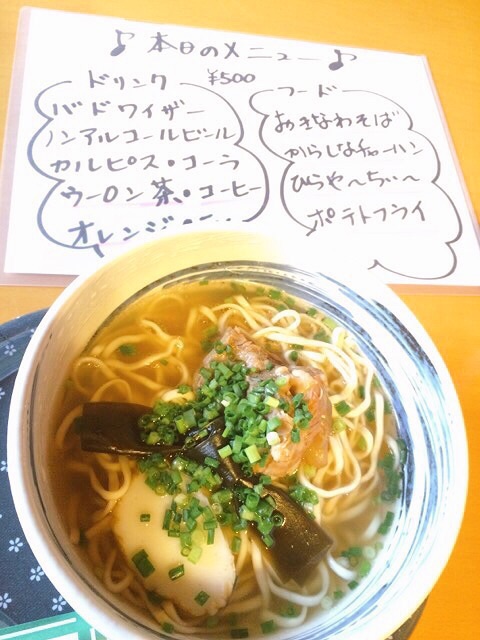 ♪ 本日のメニュー ♪
ドリンク ¥500
バドワイザー
ノンアルコールビール
カルピス・コーラ
ウーロン茶・コーヒー
オレンジ
フード
おきなわそば
からしなチャーハン
ひらやーちぃー
ポテトフライ